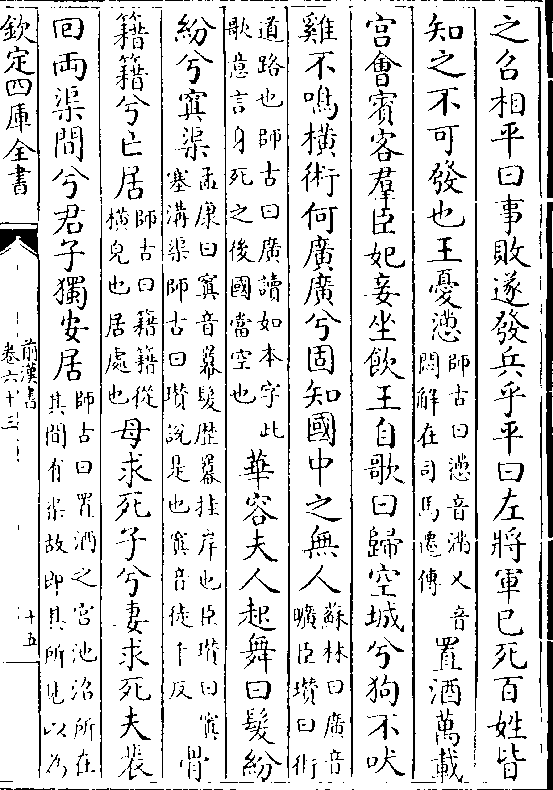 之召相平曰事敗遂發兵乎平曰左將軍已死百姓皆
知之不可發也王憂懣師古曰懣音滿又音悶解在司馬遷傳置酒萬載
宫會賓客羣臣妃妾坐飲王自歌曰歸空城兮狗不吠
雞不鳴横術何廣廣兮固知國中之無人蘇林曰廣音曠臣瓚曰術
道路也師古曰廣讀如本字此歌意言身死之後國當空也華容夫人起舞曰髮紛
紛兮寘渠孟康曰寘音羃髮歴羃挂岸也臣瓚曰寘塞溝渠師古曰瓚說是也寘音徒千反骨
籍籍兮亡居師古曰籍籍從横皃也居處也母求死子兮妻求死夫裴
回兩渠間兮君子獨安居師古曰置酒之宫池沼所在其間有渠故即其所見以為
欽定四庫全書
前漢書
卷六十三
十五